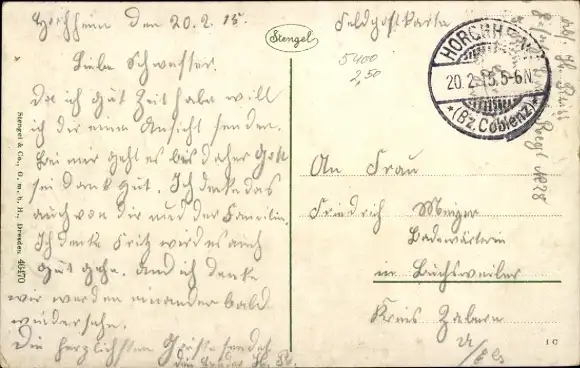 Horchheim den 20.2.15.
Liebe Schwester.
Da ich gut Zeit habe will
ich dir eine Ansicht senden.
Bei mir geht es bis daher Gott
sei dank gut. Ich denke das
auch von dir und der Familie.
Ich denke Fritz wird es auch
gut gehn. und ich denke
wir werden einander bald
wiedersehn.
Die herzlichsten Grüße sendet
dein Bruder
Stengel & Co., G. m. b. H., Dresden 46470
Stengel
Feldpostkarte
5400
2,50
HORCHHEIM
20.2.15.5-6N.
*(Bz.Coblenz)*
An Frau
Friedrich
in Buchsweiler
Kreis Zabern
1 C